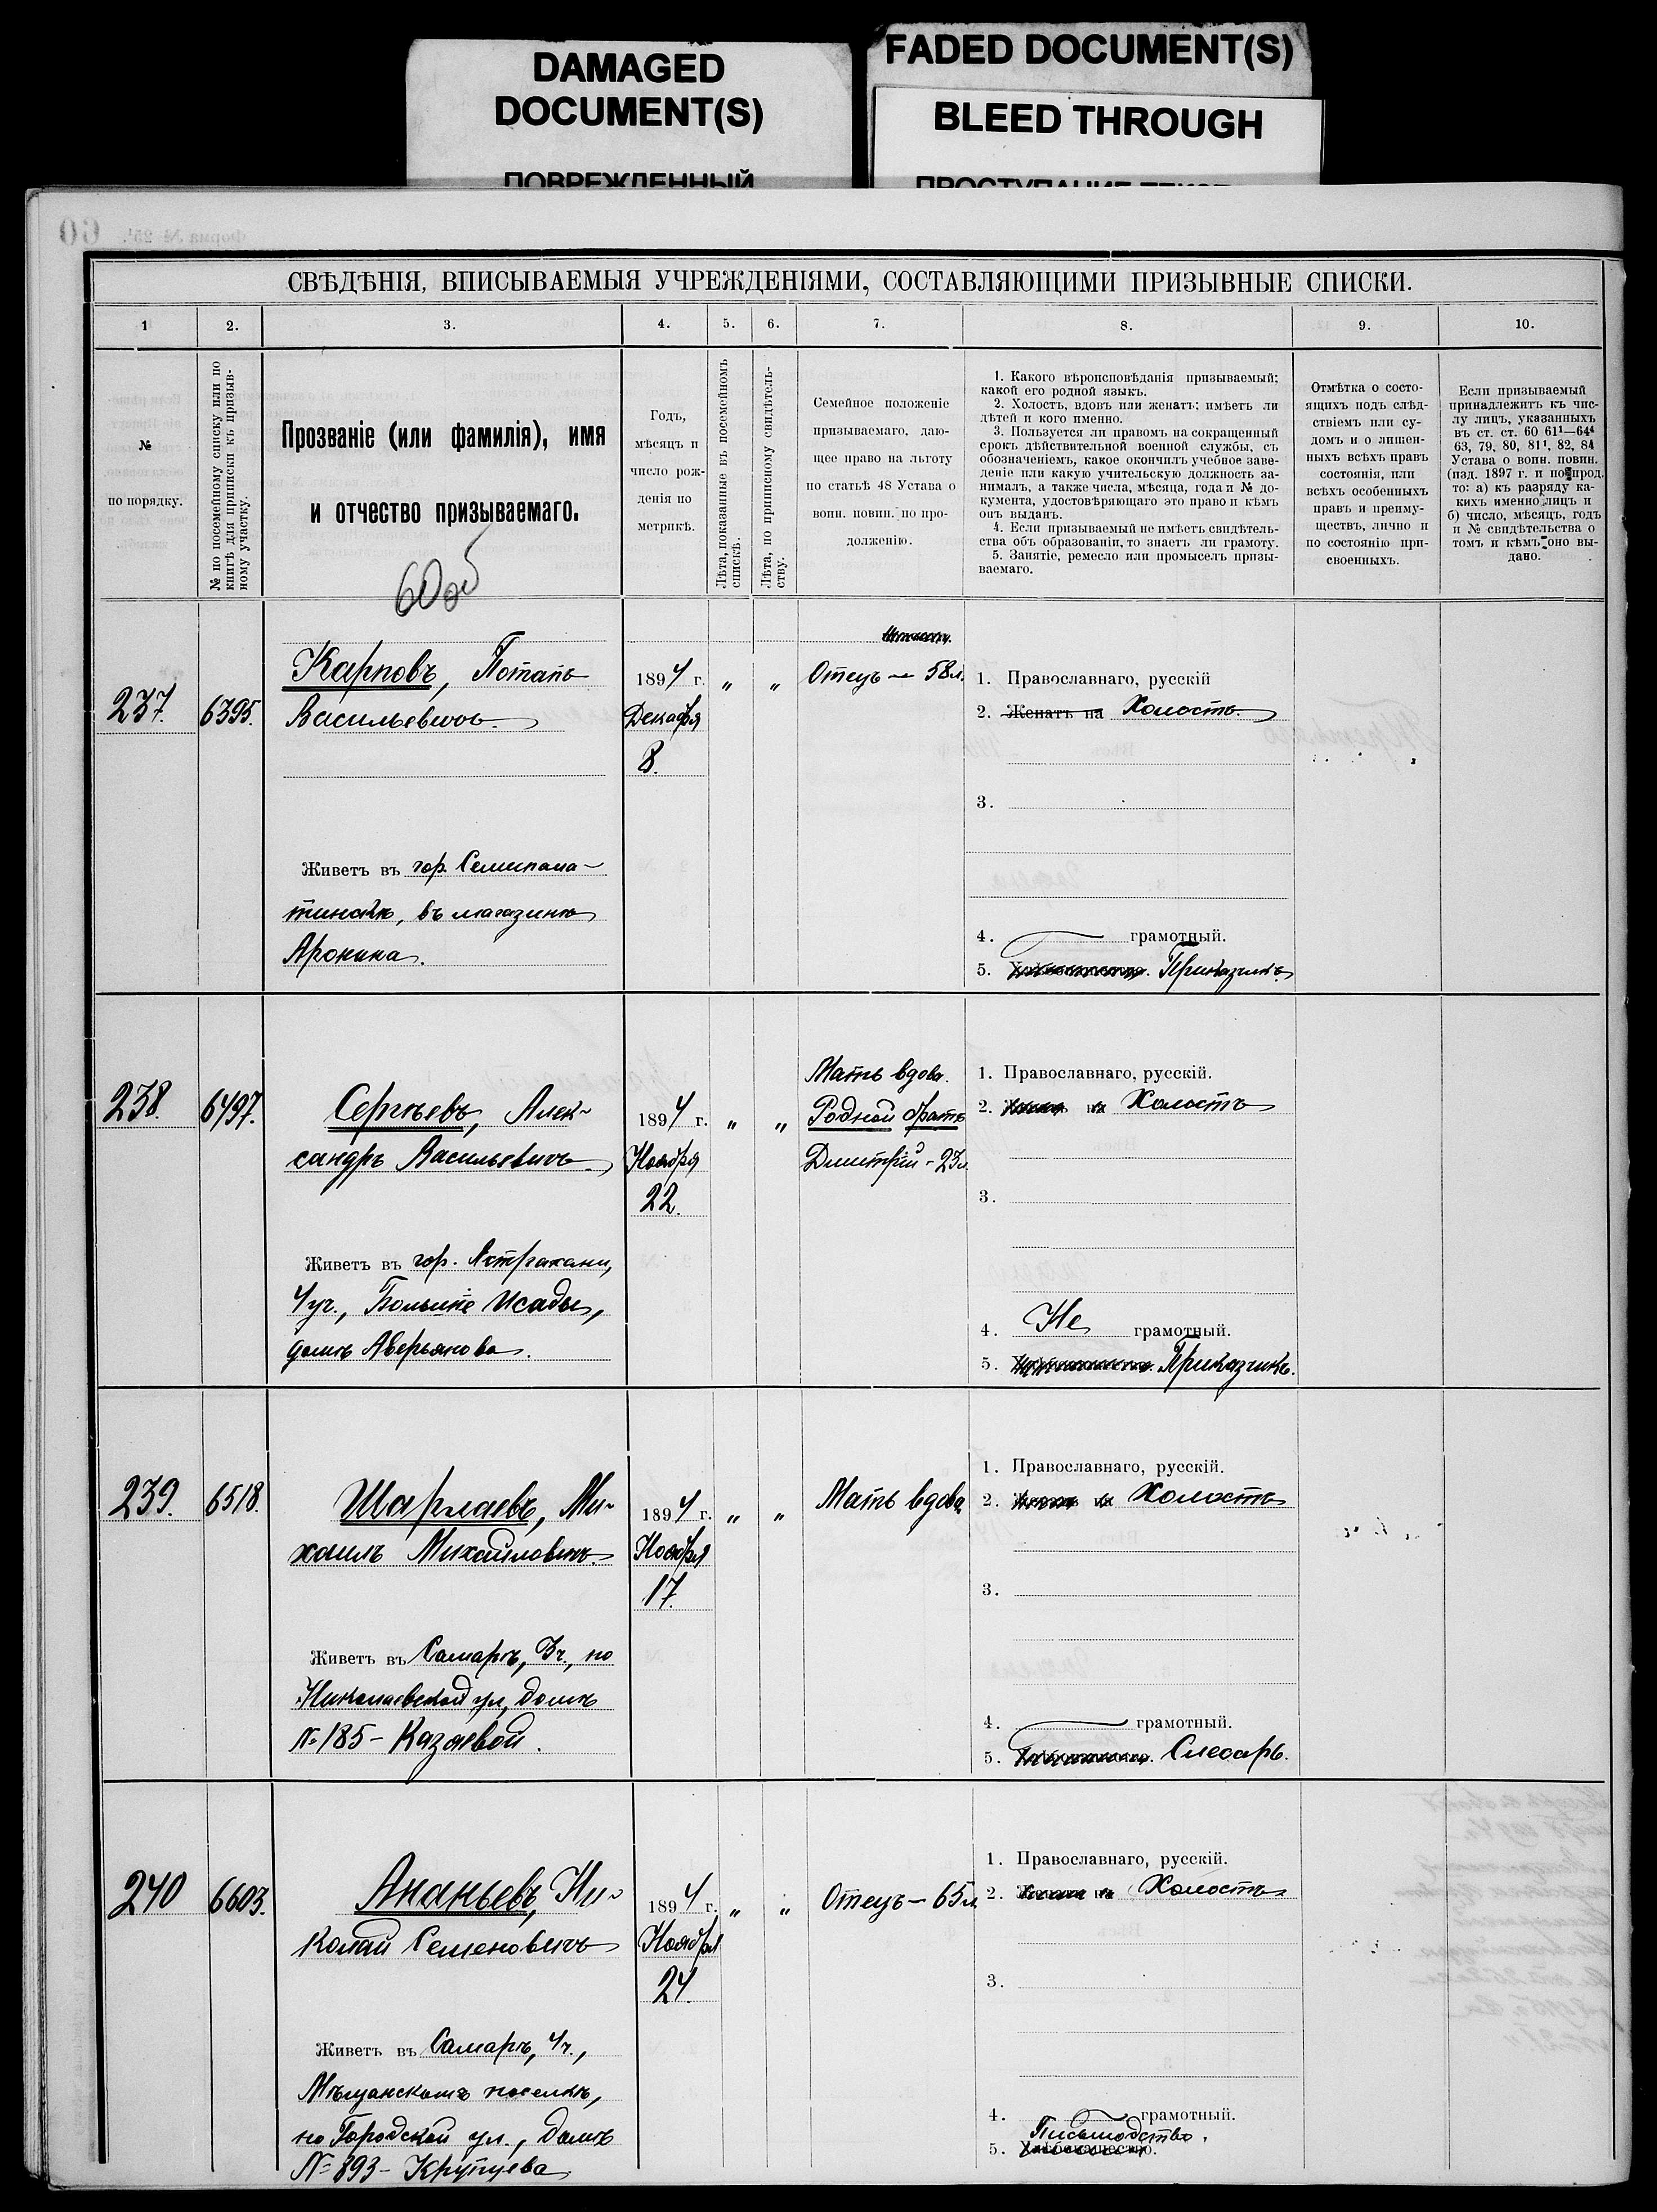 DAMAGED
DOCUMENT(S)
ПОВРЕЖДЕННЫЙ
FADED DOCUMENT(S)
BLEED THROUGH
60
Форма № 25¹.
СВѢДѢНІЯ, ВПИСЫВАЕМЫЯ УЧРЕЖДЕНІЯМИ, СОСТАВЛЯЮЩИМИ ПРИЗЫВНЫЕ СПИСКИ.
1 2. 3. 4. 5. 6. 7. 8. 9. 10.
№
по порядку.
№ по посемейному списку или по
книгѣ для приписки къ призыв-
ному участку.
Прозваніе (или фамилія), имя
и отчество призываемаго.
60 об
Годъ,
мѣсяцъ и
число рож-
денія по
метрикѣ.
Лѣта, показанныя въ посемейномъ
спискѣ.
Лѣта, по приписному свидѣтель-
ству.
Семейное положеніе
призываемаго, даю-
щее право на льготу
по статьѣ 48 Устава о
воин. повин. по про-
долженію.
1. Какого вѣроисповѣданія призываемый;
какой его родной языкъ.
2. Холостъ, вдовъ или женатъ; имѣетъ ли
дѣтей и кого именно.
3. Пользуется ли правомъ на сокращенный
срокъ дѣйствительной военной службы, съ
обозначеніемъ, какое окончилъ учебное заве-
деніе или какую учительскую должность за-
нималъ, а также числа, мѣсяца, года и № до-
кумента, удостовѣряющаго это право и кѣмъ
онъ выданъ.
4. Если призываемый не имѣетъ свидѣтель-
ства объ образованіи, то знаетъ ли грамоту.
5. Занятіе, ремесло или промыселъ призы-
ваемаго.
Отмѣтка о состо-
ящихъ подъ слѣд-
ствіемъ или су-
домъ и о лишен-
ныхъ всѣхъ правъ
состоянія, или
всѣхъ особенныхъ
правъ и преиму-
ществъ, лично и
по состоянію при-
своенныхъ.
Если призываемый
принадлежитъ къ чис-
лу лицъ, указанныхъ
въ ст. ст. 60 61¹—64⁴
63, 79, 80, 81¹, 82, 84
Устава о воин. повин.
(изд. 1897 г. и по прод.
то: а) къ разряду ка-
кихъ именно лицъ и
б) число, мѣсяцъ, годъ
и № свидѣтельства о
томъ и кѣмъ оно вы-
дано.
237. 6395.
Карповъ, Потапъ
Васильевичъ
1894 г.
Декабря
8.
" "
Отецъ — 58 л.
1. Православнаго, русскій
2. Женатъ на Холостъ
3.
Живетъ въ гор. Семипала-
тинскѣ, въ магазинѣ
Аронина.
4. грамотный.
5. Приказчикъ
238. 6497.
Сергѣевъ, Алек-
сандръ Васильевичъ
1894 г.
Ноября
22.
" "
Мать вдова.
Родной братъ
Дмитрій - 23 л.
1. Православнаго, русскій.
2. на Холостъ
3.
Живетъ въ гор. Астрахани,
4 уч., Большіе Исады,
домъ Аверьянова.
4. Не грамотный.
5. Приказчикъ.
239. 6518.
Шарлаевъ, Ми-
хаилъ Михайловичъ
1894 г.
Ноября
17.
" "
Мать вдова
1. Православнаго, русскій.
2. на Холостъ
3.
Живетъ въ Самарѣ, 3 ч., по
Николаевской ул., домъ
№ 185 - Казаевой.
4. грамотный.
5. Слесарь.
240 6603.
Ананьевъ, Ни-
колай Семеновичъ
1894 г.
Ноября
24.
" "
Отецъ — 65 л.
1. Православнаго, русскій.
2. на Холостъ
3.
Живетъ въ Самарѣ, 4 ч.,
Мѣщанскомъ поселкѣ,
по Городской ул., домъ
№ 893 - Крупцева
4. грамотный.
Письмоводство.
5. Хлѣбопашество.